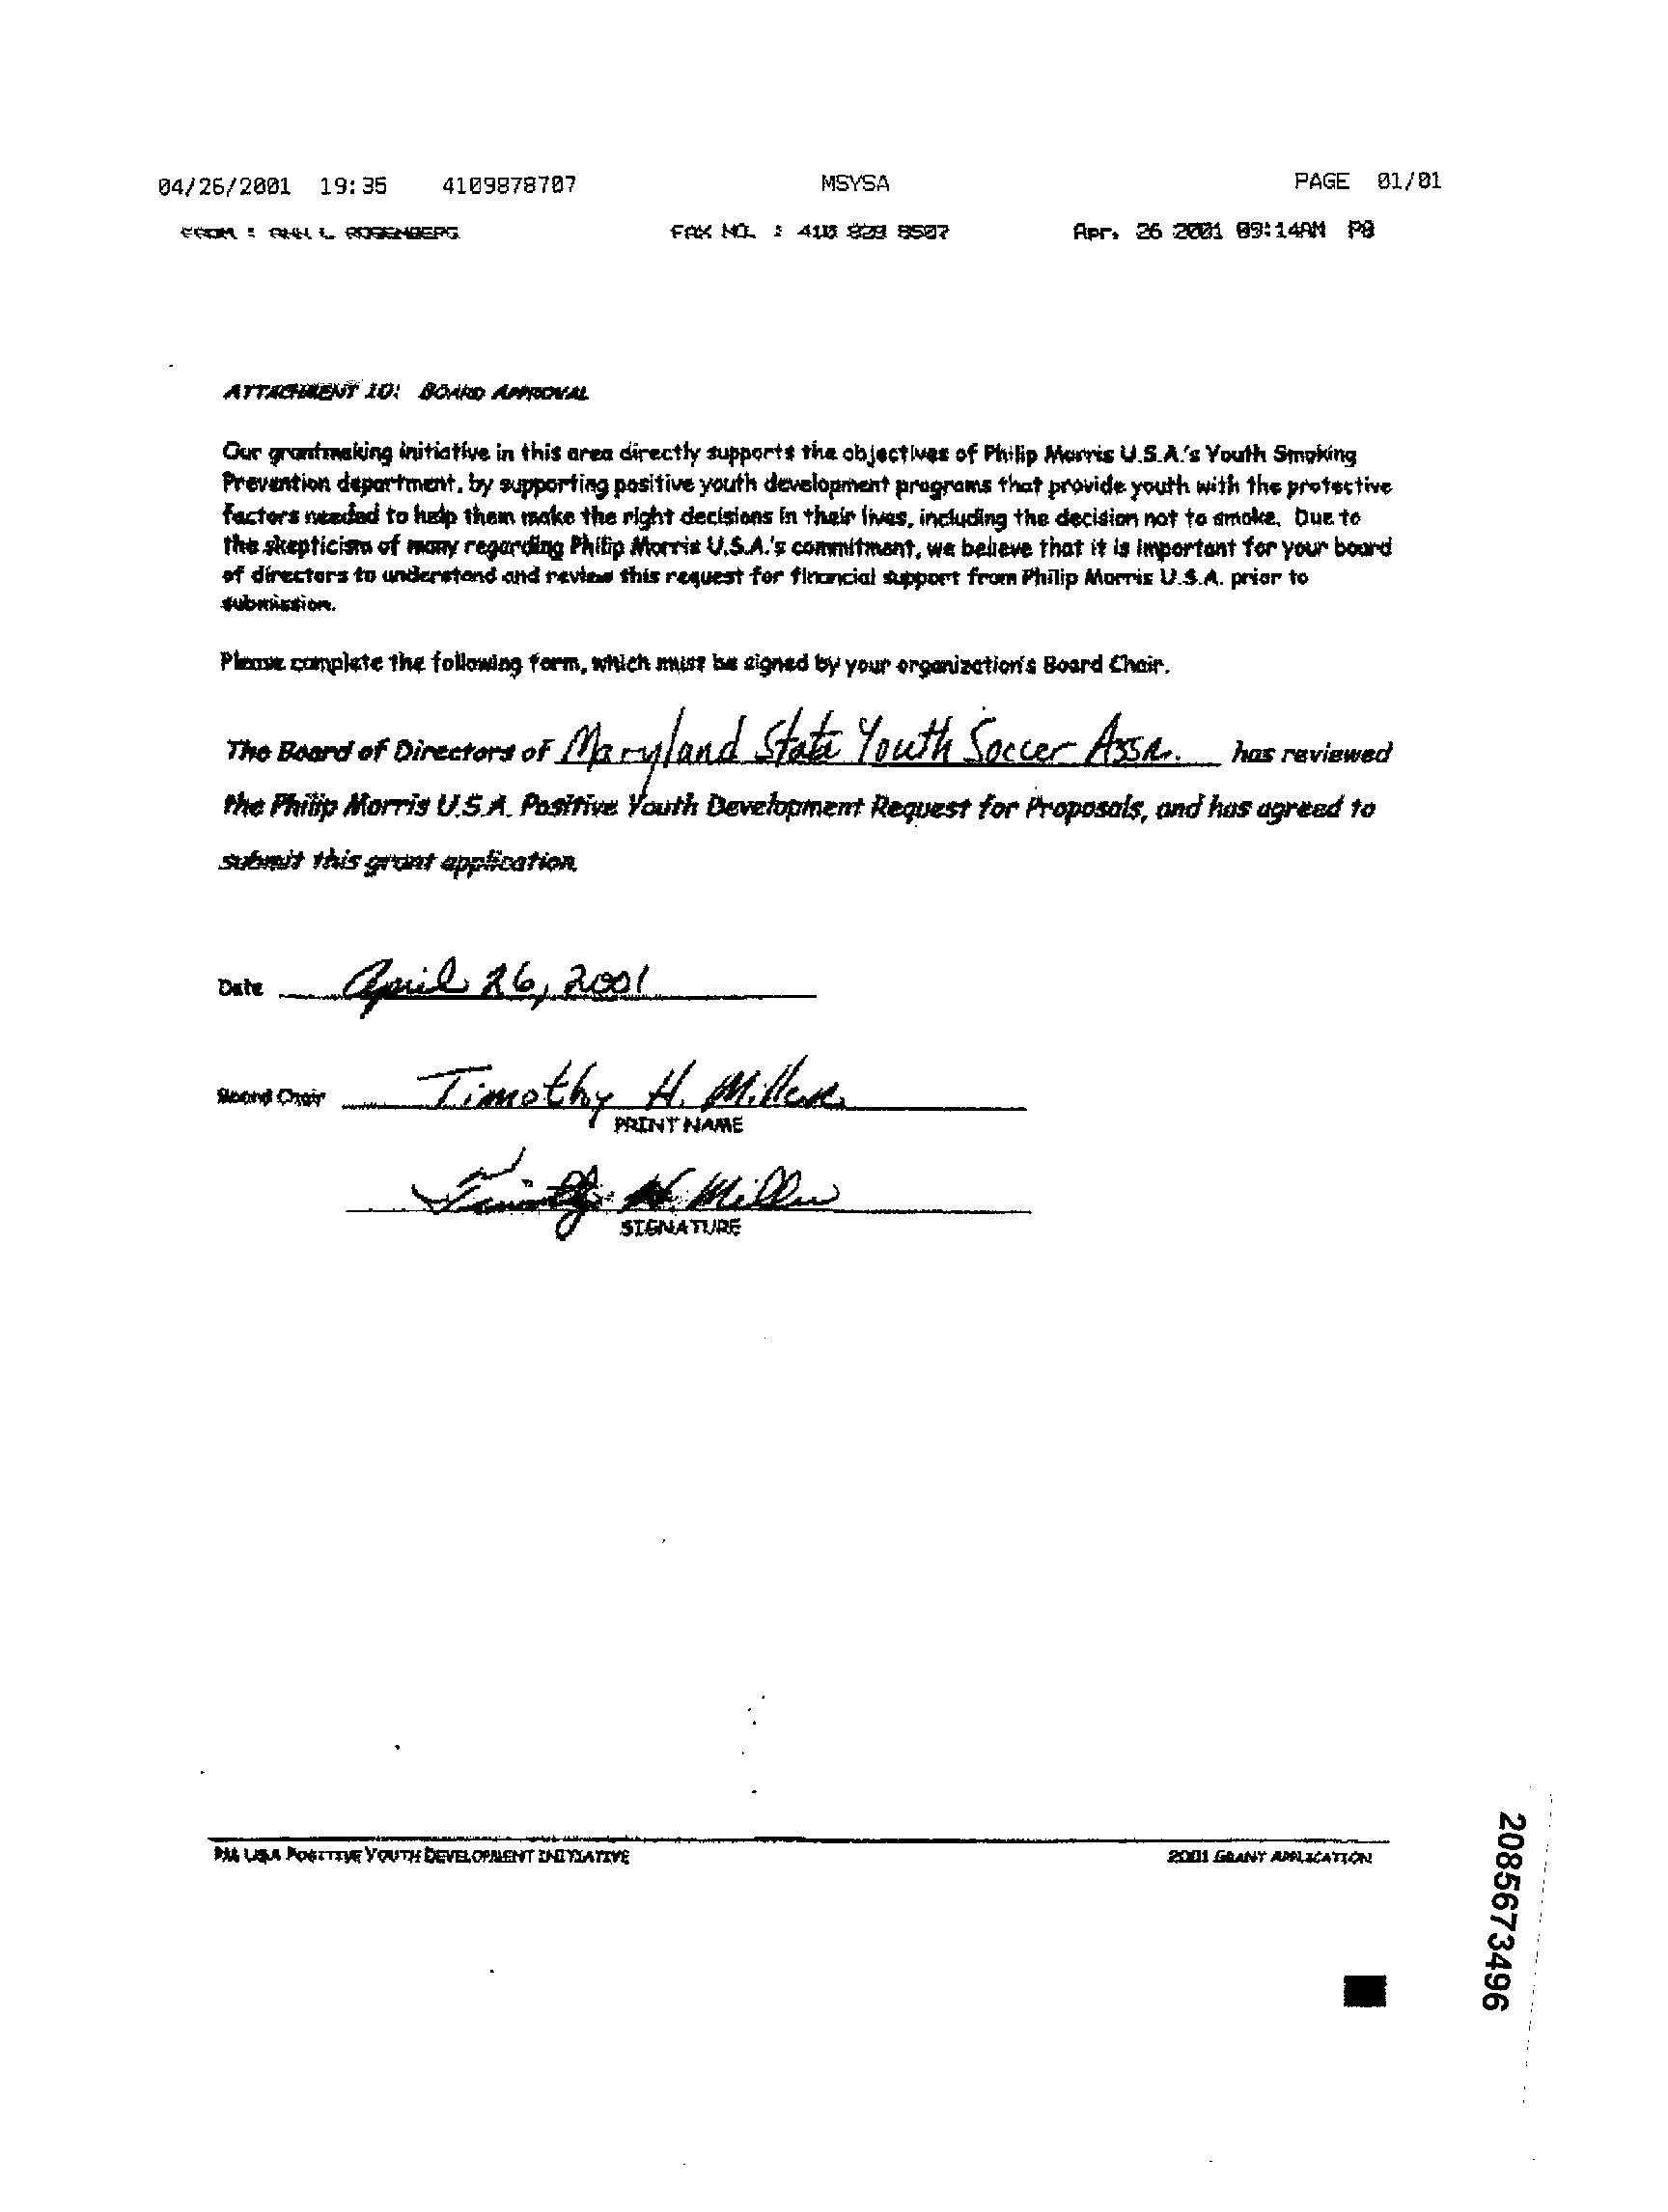 04/26/2001 19:35 4109878707 MSYSA PAGE 01/01
FROM : ANN L ROSENBERG FAX NO. : 410 829 8507 Apr. 26 2001 09:14AM P8
ATTACHMENT 10: BOARD APPROVAL
Our grantmaking initiative in this area directly supports the objectives of Philip Morris U.S.A.'s Youth Smoking
Prevention department, by supporting positive youth development programs that provide youth with the protective
factors needed to help them make the right decisions in their lives, including the decision not to smoke. Due to
the skepticism of many regarding Philip Morris U.S.A.'s commitment, we believe that it is important for your board
of directors to understand and review this request for financial support from Philip Morris U.S.A. prior to
submission.
Please complete the following form, which must be signed by your organization's Board Chair.
The Board of Directors of Maryland State Youth Soccer Assn. has reviewed
the Philip Morris U.S.A. Positive Youth Development Request for Proposals, and has agreed to
submit this grant application.
Date April 26, 2001
Board Chair Timothy H. Miller
PRINT NAME
Timothy H. Miller
SIGNATURE
PM USA POSITIVE YOUTH DEVELOPMENT INITIATIVE 2001 GRANT APPLICATION
2085673496